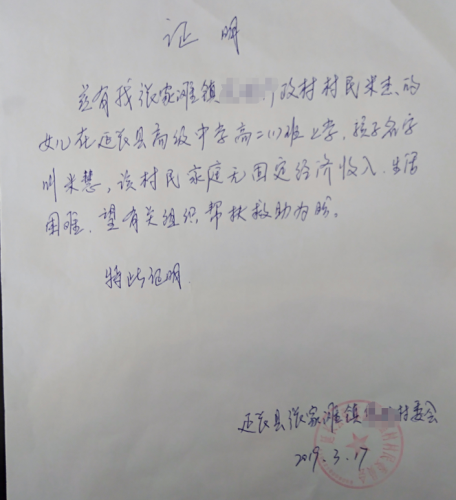 证明
兹有我张家滩镇政村村民米志的
女儿在延长县高级中学高二(1)班上学，孩子名字
叫米慧，该村民家庭无固定经济收入、生活
困难，望有关组织帮扶救助为盼。
特此证明
延长县张家滩镇村委会
2019.3.17